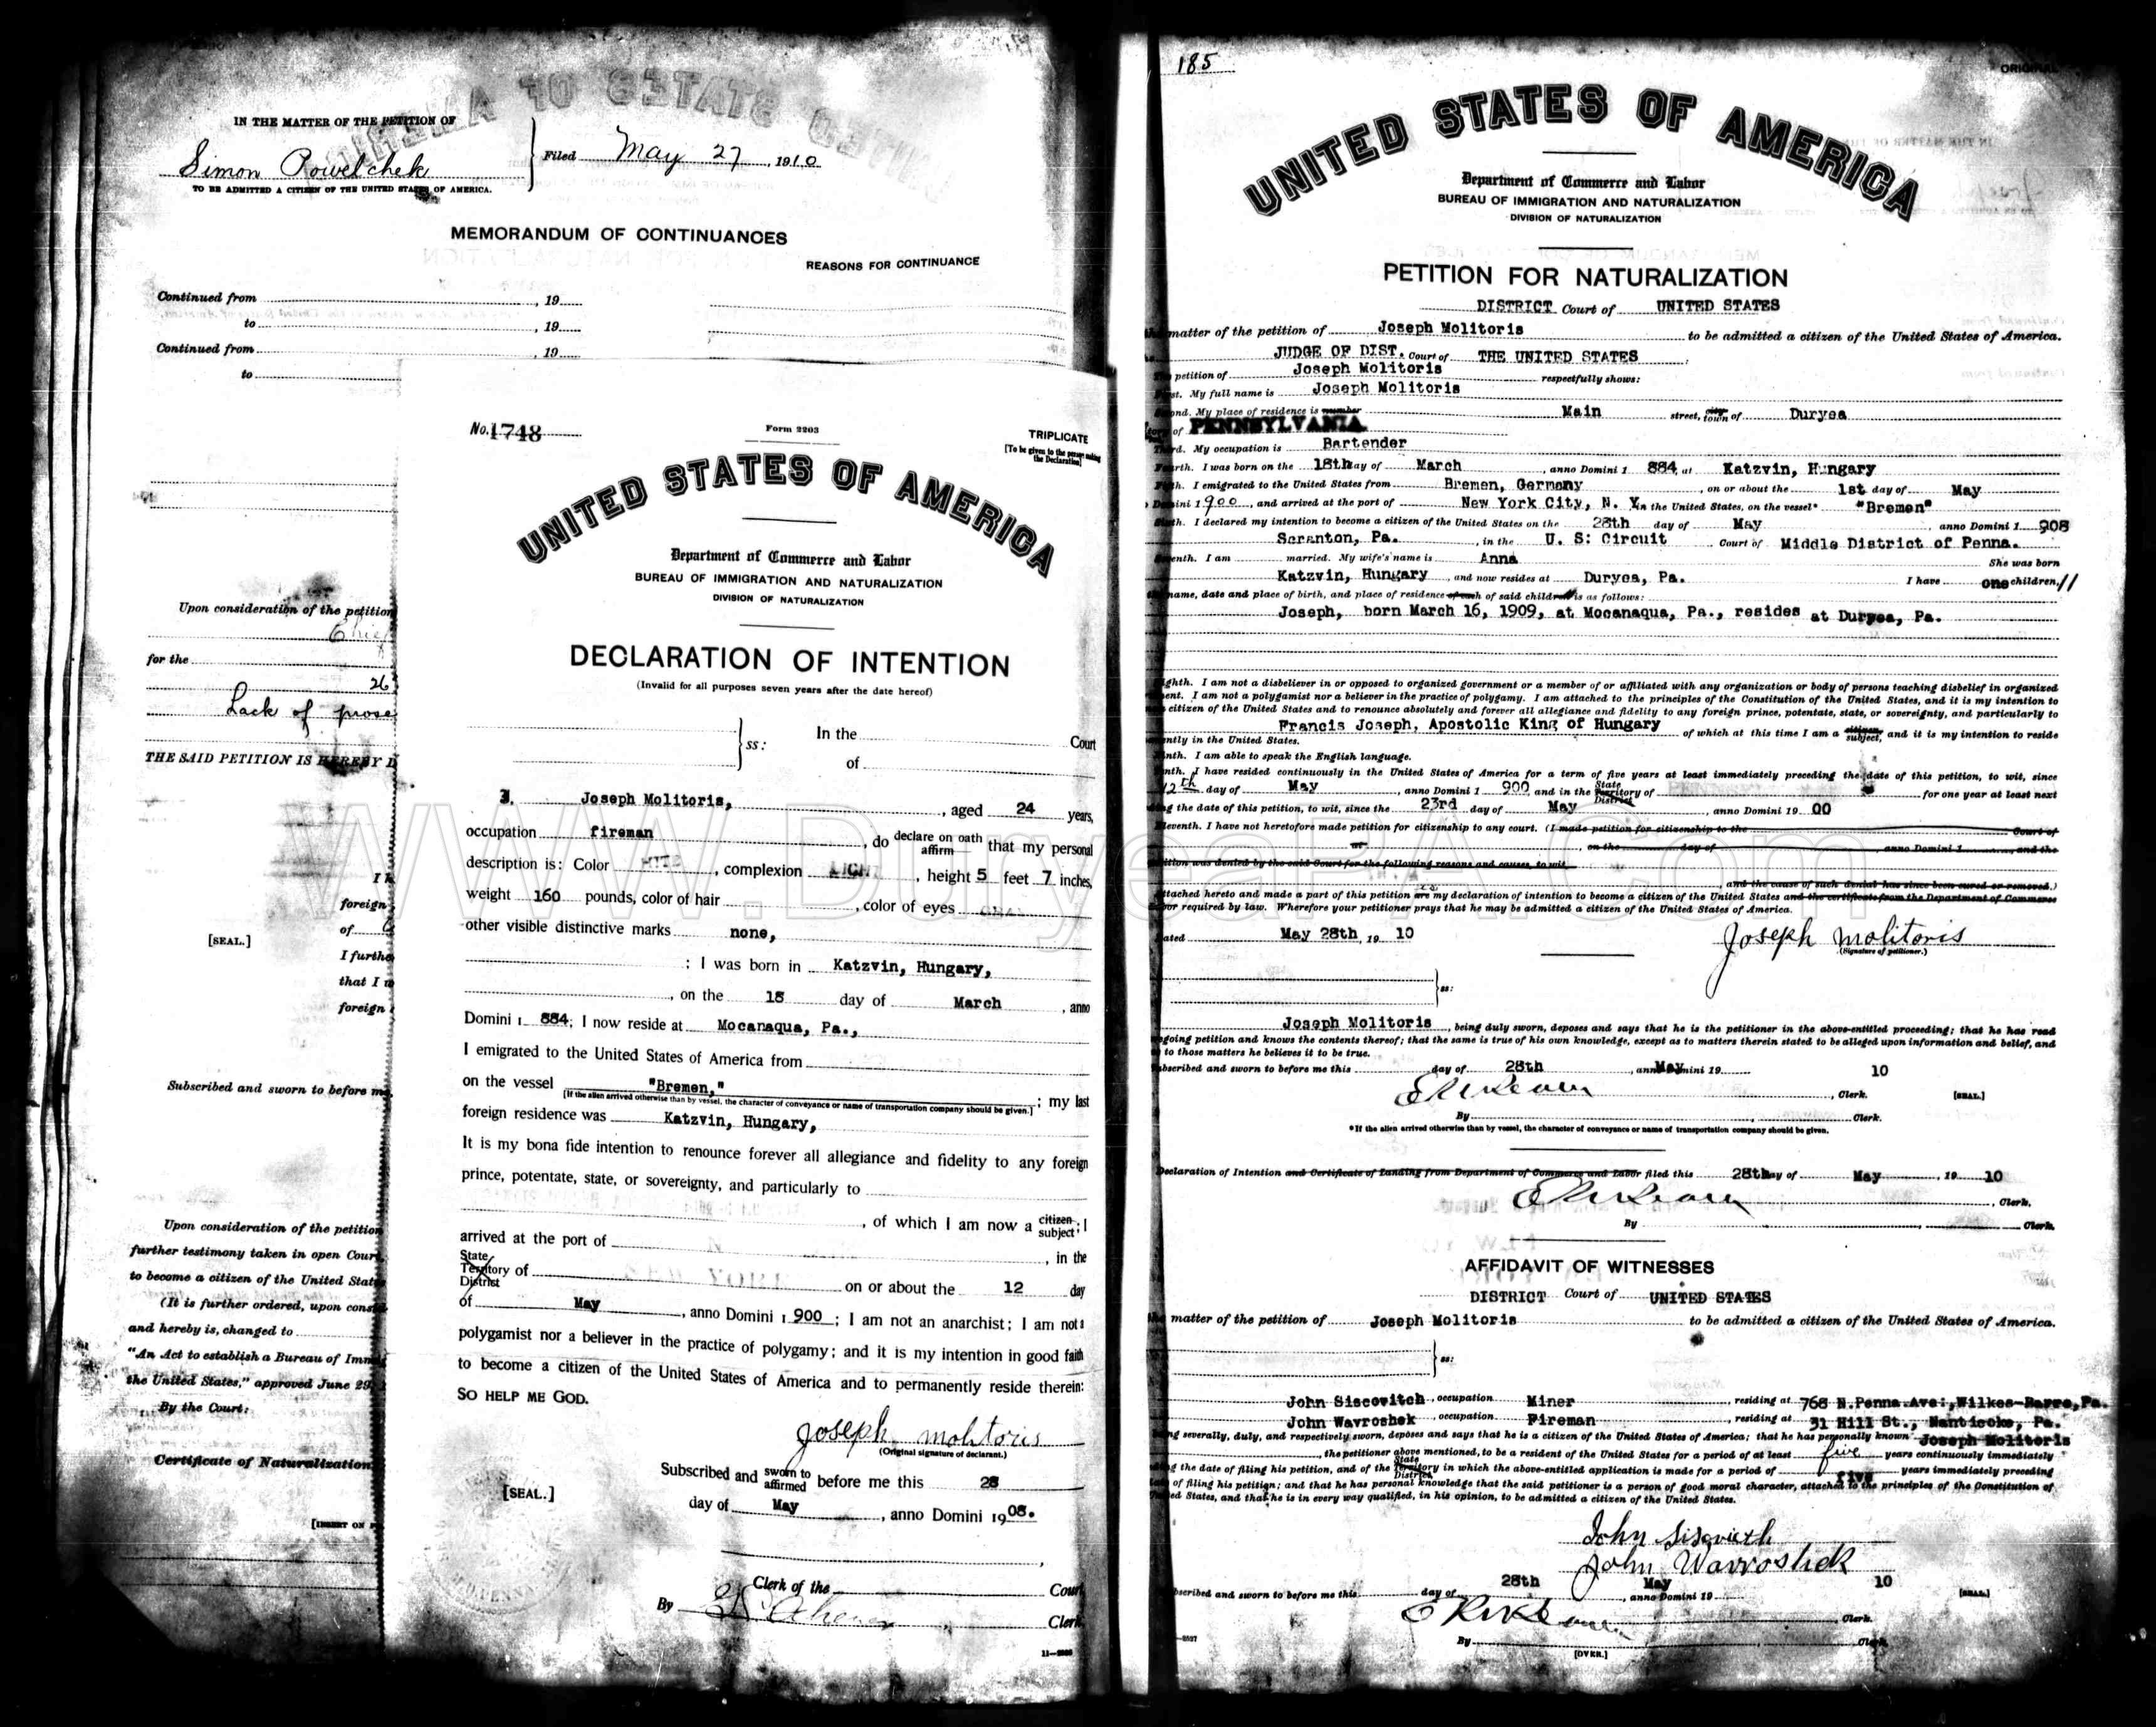 IN THE MATTER OF THE PETITION OF
Simon Powelchek
TO BE ADMITTED A CITIZEN OF THE UNITED STATES OF AMERICA.
Filed May 27, 1910
MEMORANDUM OF CONTINUANCES
REASONS FOR CONTINUANCE
Continued from , 19
to , 19
Continued from , 19
to
Upon consideration of the petition
for the
26
Lack of prose
THE SAID PETITION IS HEREBY D
I h
foreign
of
[SEAL.]
I furthe
that I
foreign
Subscribed and sworn to before me
Upon consideration of the petition
further testimony taken in open Cour
to become a citizen of the United Stat
(It is further ordered, upon cons
and hereby is, changed to
"An Act to establish a Bureau of Imm
the United States," approved June 29
By the Court:
Certificate of Naturalization
[INSERT ON
No. 1748
Form 2203
TRIPLICATE
[To be given to the person making the Declaration]
UNITED STATES OF AMERICA
Department of Commerce and Labor
BUREAU OF IMMIGRATION AND NATURALIZATION
DIVISION OF NATURALIZATION
DECLARATION OF INTENTION
(Invalid for all purposes seven years after the date hereof)
ss: In the Court
of
I, Joseph Molitoris, , aged 24 years,
occupation fireman , do declare on oath affirm that my personal
description is: Color , complexion LIGHT , height 5 feet 7 inches,
weight 160 pounds, color of hair , color of eyes
other visible distinctive marks none,
; I was born in Katzvin, Hungary,
, on the 18 day of March , anno
Domini 1 884; I now reside at Mocanaqua, Pa.,
I emigrated to the United States of America from
on the vessel "Bremen," ; my last
[If the alien arrived otherwise than by vessel, the character of conveyance or name of transportation company should be given.]
foreign residence was Katzvin, Hungary,
It is my bona fide intention to renounce forever all allegiance and fidelity to any foreign
prince, potentate, state, or sovereignty, and particularly to
, of which I am now a citizen subject; I
arrived at the port of , in the
State Territory District of NEW YORK on or about the 12 day
of May , anno Domini 1 900 ; I am not an anarchist; I am not a
polygamist nor a believer in the practice of polygamy; and it is my intention in good faith
to become a citizen of the United States of America and to permanently reside therein:
SO HELP ME GOD.
Joseph Molitoris
(Original signature of declarant.)
Subscribed and sworn to affirmed before me this 28
[SEAL.] day of May , anno Domini 1908.
Clerk of the Court
By Clerk
185
ORIGINAL
UNITED STATES OF AMERICA
Department of Commerce and Labor
BUREAU OF IMMIGRATION AND NATURALIZATION
DIVISION OF NATURALIZATION
PETITION FOR NATURALIZATION
DISTRICT Court of UNITED STATES
matter of the petition of Joseph Molitoris to be admitted a citizen of the United States of America.
JUDGE OF DIST. Court of THE UNITED STATES
petition of Joseph Molitoris respectfully shows:
First. My full name is Joseph Molitoris
Second. My place of residence is number Main street, city town of Duryea
of PENNSYLVANIA
Third. My occupation is Bartender
Fourth. I was born on the 18th day of March , anno Domini 1 884, at Katzvin, Hungary
Fifth. I emigrated to the United States from Bremen, Germany , on or about the 1st day of May
Domini 1900 , and arrived at the port of New York City, N. Y. in the United States, on the vessel* "Bremen"
Sixth. I declared my intention to become a citizen of the United States on the 28th day of May , anno Domini 1 908
Scranton, Pa. , in the U. S: Circuit Court of Middle District of Penna.
Seventh. I am married. My wife's name is Anna She was born
Katzvin, Hungary and now resides at Duryea, Pa. I have one children, //
name, date and place of birth, and place of residence of each of said children is as follows:
Joseph, born March 16, 1909, at Mocanaqua, Pa., resides at Duryea, Pa.
Eighth. I am not a disbeliever in or opposed to organized government or a member of or affiliated with any organization or body of persons teaching disbelief in organized
ment. I am not a polygamist nor a believer in the practice of polygamy. I am attached to the principles of the Constitution of the United States, and it is my intention to
citizen of the United States and to renounce absolutely and forever all allegiance and fidelity to any foreign prince, potentate, state, or sovereignty, and particularly to
Francis Joseph, Apostolic King of Hungary of which at this time I am a citizen subject, and it is my intention to reside
ently in the United States.
Ninth. I am able to speak the English language.
Tenth. I have resided continuously in the United States of America for a term of five years at least immediately preceding the date of this petition, to wit, since
12th day of May , anno Domini 1 900 and in the State Territory District of for one year at least next
ing the date of this petition, to wit, since the 23rd day of May , anno Domini 19 00
Eleventh. I have not heretofore made petition for citizenship to any court. (I made petition for citizenship to the Court of
on the day of , anno Domini 1 , and the
petition was denied by the said Court for the following reasons and causes, to wit,
and the cause of such denial has since been cured or removed.)
Attached hereto and made a part of this petition are is my declaration of intention to become a citizen of the United States and the certificate from the Department of Commerce
Labor required by law. Wherefore your petitioner prays that he may be admitted a citizen of the United States of America.
Dated May 28th, 19 10
Joseph Molitoris
(Signature of petitioner.)
ss:
Joseph Molitoris , being duly sworn, deposes and says that he is the petitioner in the above-entitled proceeding; that he has read
going petition and knows the contents thereof; that the same is true of his own knowledge, except as to matters therein stated to be alleged upon information and belief, and
to those matters he believes it to be true.
Subscribed and sworn to before me this 28th day of May , anno Domini 19 10
, Clerk. [SEAL.]
By , Clerk.
*If the alien arrived otherwise than by vessel, the character of conveyance or name of transportation company should be given.
Declaration of Intention and Certificate of Landing from Department of Commerce and Labor filed this 28th day of May , 19 10
, Clerk.
By , Clerk.
AFFIDAVIT OF WITNESSES
DISTRICT Court of UNITED STATES
matter of the petition of Joseph Molitoris to be admitted a citizen of the United States of America.
ss:
John Siscovitch , occupation Miner , residing at 768 N.Penna.Ave:,Wilkes-Barre,Pa.
John Wavroshek , occupation Fireman , residing at 31 Hill St., Nanticoke, Pa.
being severally, duly, and respectively sworn, deposes and says that he is a citizen of the United States of America; that he has personally known Joseph Molitoris
, the petitioner above mentioned, to be a resident of the United States for a period of at least five years continuously immediately
ing the date of filing his petition, and of the State Territory District in which the above-entitled application is made for a period of five years immediately preceding
of filing his petition; and that he has personal knowledge that the said petitioner is a person of good moral character, attached to the principles of the Constitution of
United States, and that he is in every way qualified, in his opinion, to be admitted a citizen of the United States.
John Sisovitch
John Wavroshek
Subscribed and sworn to before me this 28th day of May , anno Domini 19 10 [SEAL.]
, Clerk.
By , Clerk.
[OVER.]
www.DuryeaPA.Com